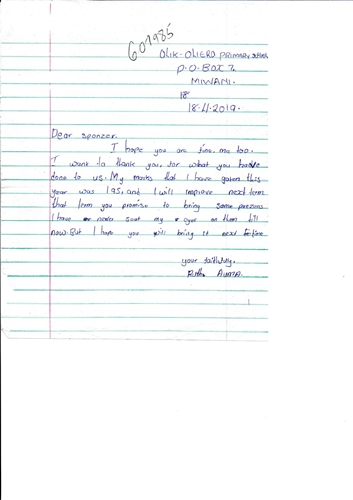 601985
OLIK-OLIERO PRIMARY SCHOOL
P.O.BOX 2
MIWANI.
18
18.11.2019.
Dear sponzer.
I hope you are fine. me too.
I want to thank you. for what you have
done to us. My marks that I have goten this
year was 195, and I will improve next term
that term you promise to bring some presons
I have never seat my eyes on them till
now. But I hope you will bring it next
your faithfully.
Ruth AUMA.